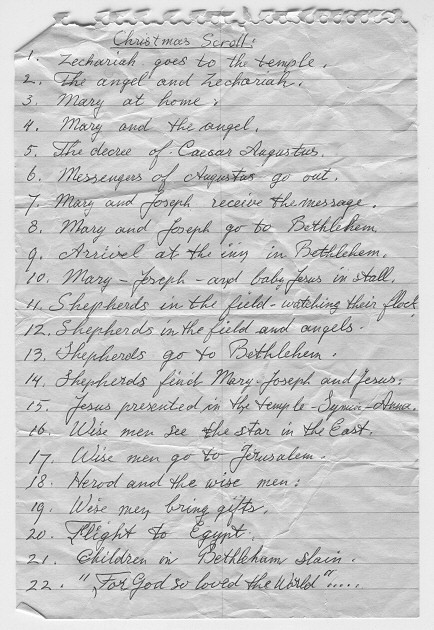 Christmas Scroll:
1. Zechariah goes to the temple.
2. The angel and Zechariah.
3. Mary at home.
4. Mary and the angel.
5. The decree of Caesar Augustus.
6. Messengers of Augustus go out.
7. Mary and Joseph receive the message.
8. Mary and Joseph go to Bethlehem
9. Arrival at the inn in Bethlehem.
10. Mary - Joseph - and baby Jesus in stall.
11. Shepherds in the field - watching their flock
12. Shepherds in the field and angels.
13. Shepherds go to Bethlehem.
14. Shepherds find Mary - Joseph and Jesus.
15. Jesus presented in the temple - Anna.
16. Wise men see the star in the East.
17. Wise men go to Jerusalem.
18. Herod and the wise men:
19. Wise men bring gifts.
20. Flight to Egypt.
21. Children in Bethlehem slain.
22. "For God so loved the World".....